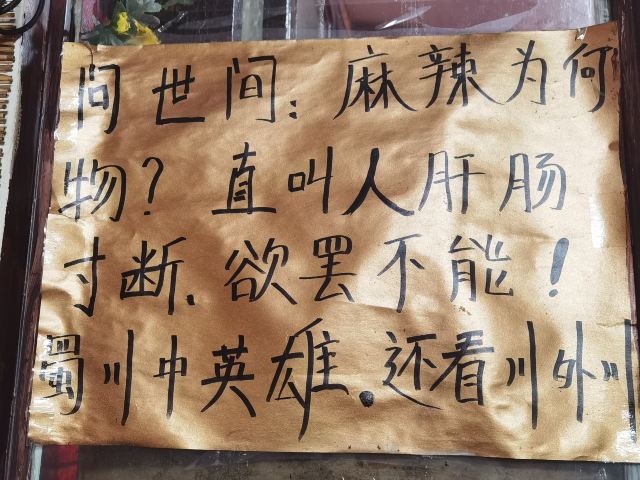 问世间:麻辣为何
物?直叫人肝肠
寸断.欲罢不能!
蜀川中英雄.还看川外川